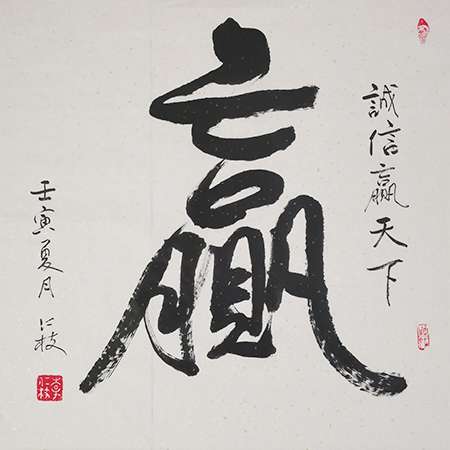 誠信贏天下
贏
壬寅夏月 仁枝
李仁枝